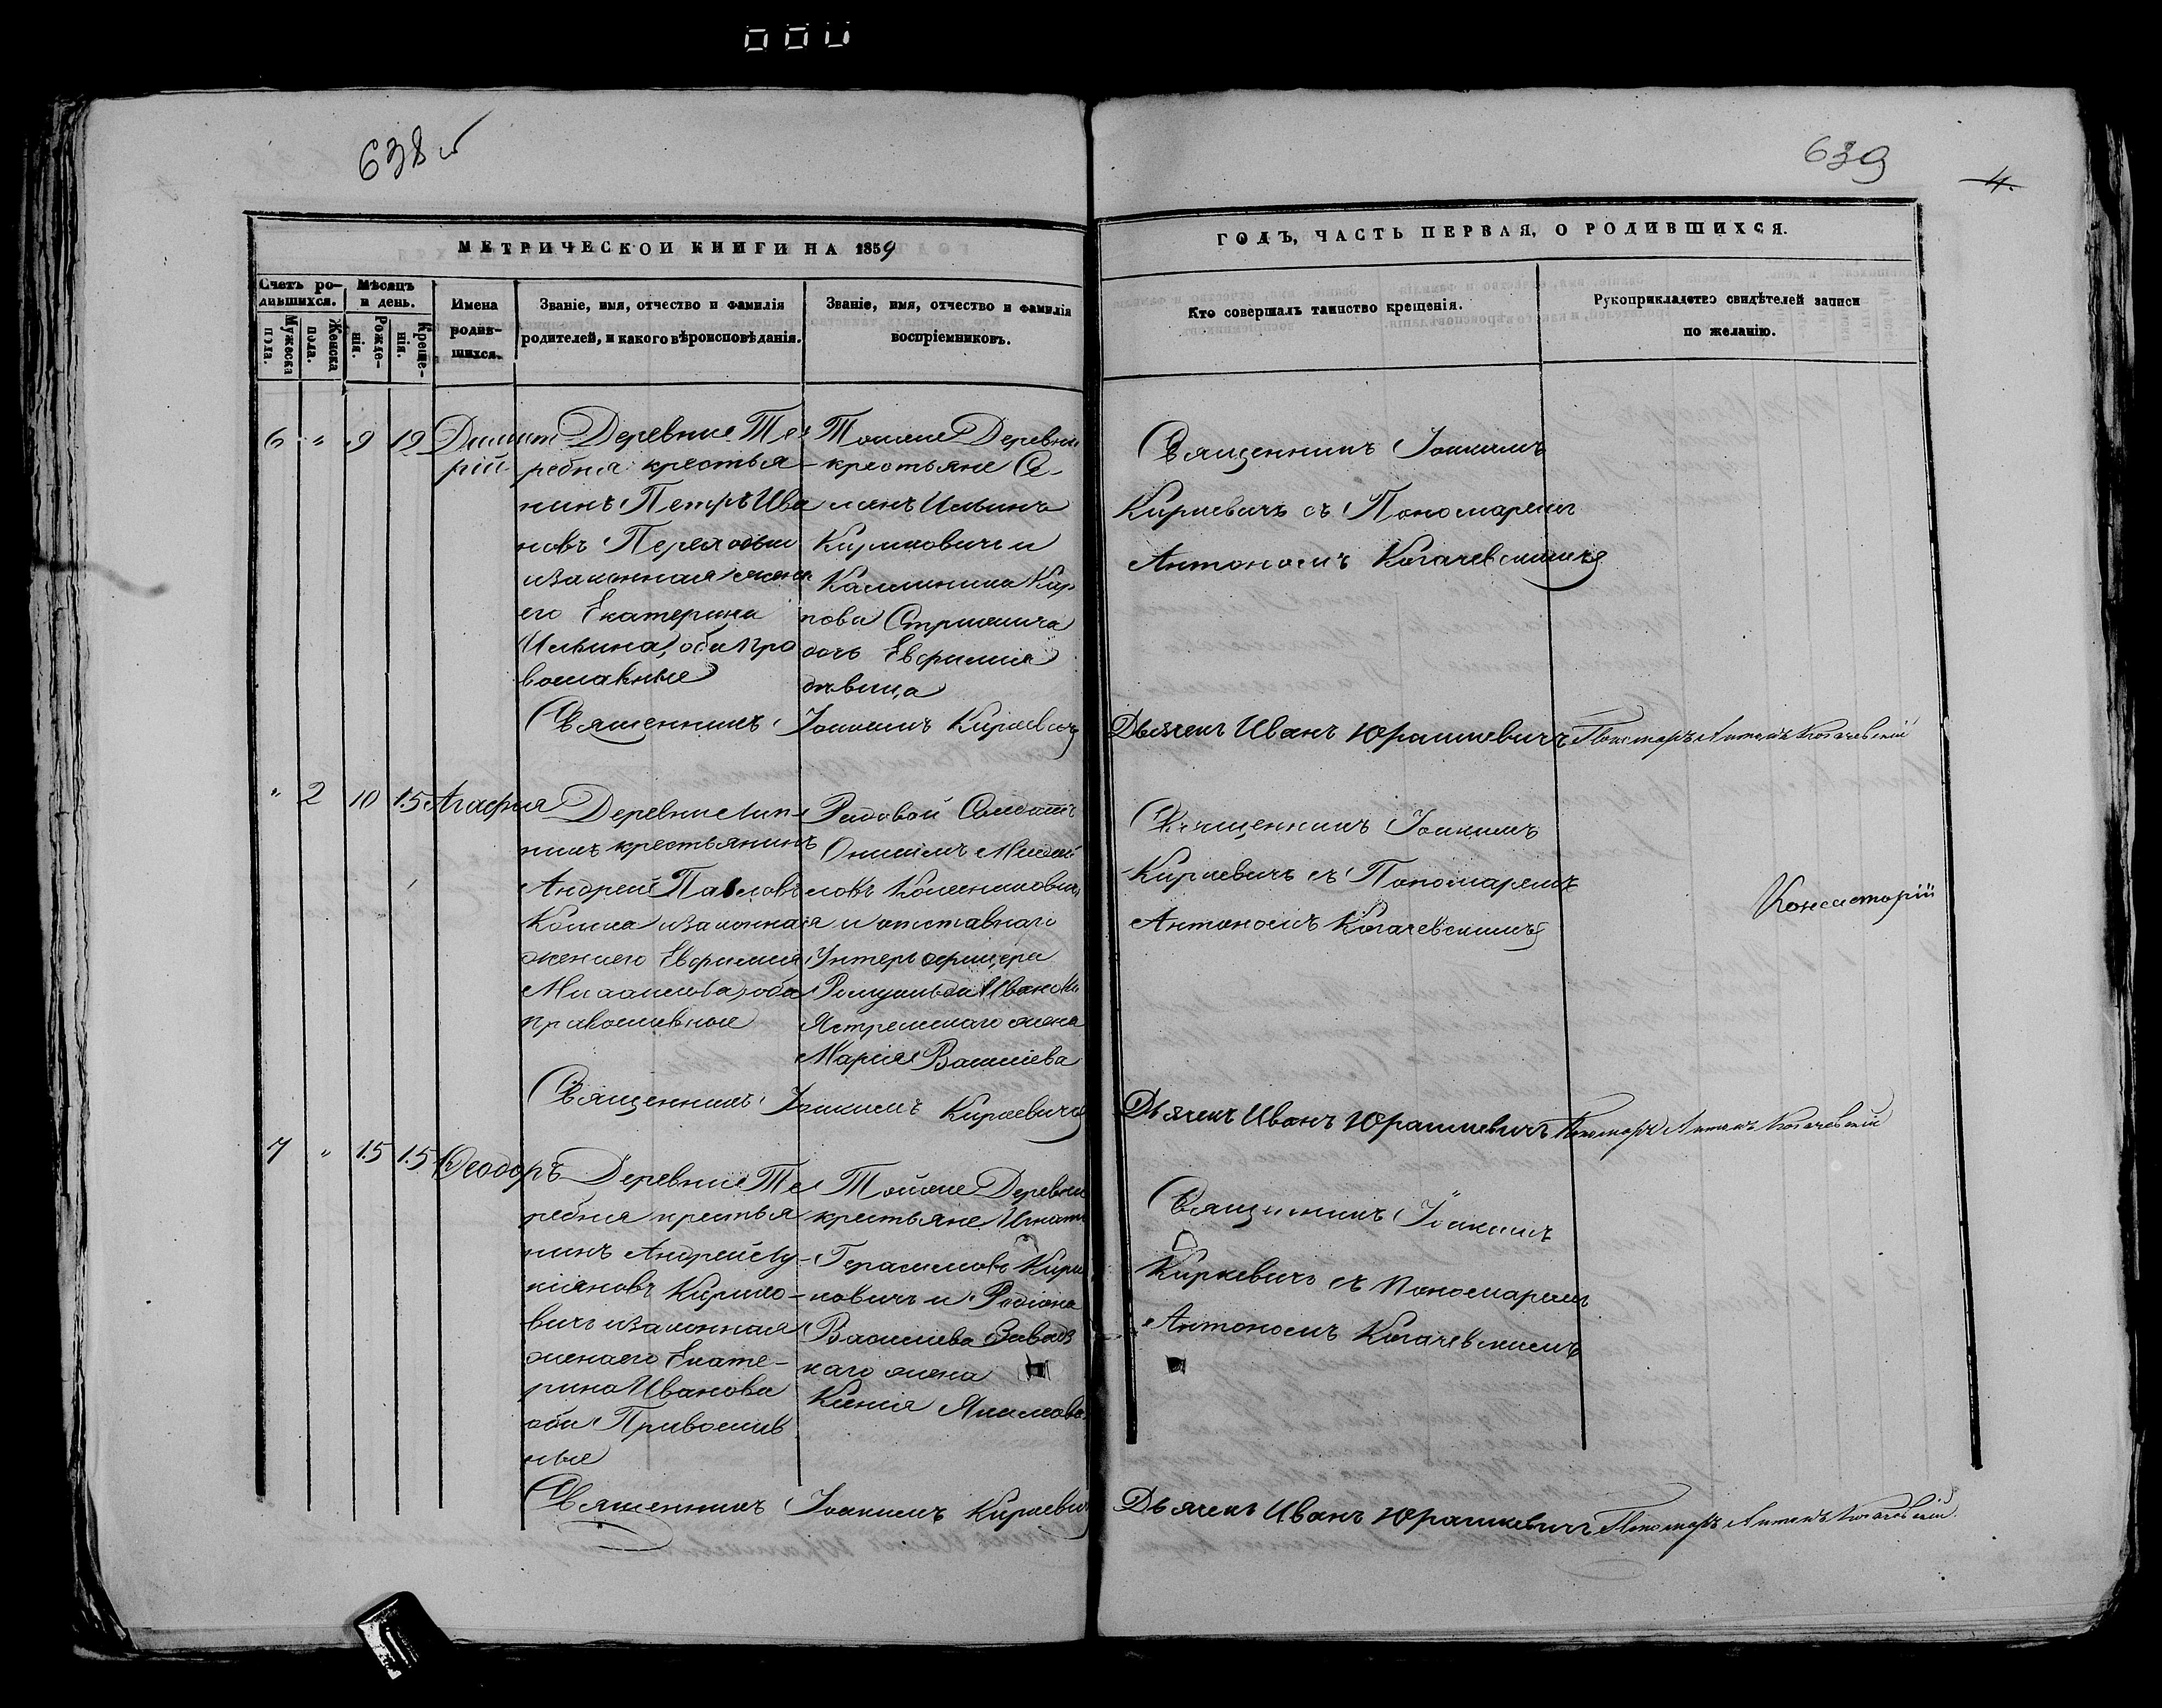 638 об
639
4.
МЕТРИЧЕСКОЙ КНИГИ НА 1859
ГОДЪ, ЧАСТЬ ПЕРВАЯ, О РОДИВШИХСЯ.
Счетъ родившихся.
Мужеска пола.
Женска пола.
Мѣсяцъ и день.
Рожденія.
Крещенія.
Имена родившихся.
Званіе, имя, отчество и фамилія родителей, и какого вѣроисповѣданія.
Званіе, имя, отчество и фамилія воспріемниковъ.
Кто совершалъ таинство крещенія.
Рукоприкладство свидѣтелей записи по желанію.
6 " 9 12
Димит
рій
Деревни Те
ребня крестья-
нинъ Петръ Ива
новъ
и законная жена
его Екатерина
Ильина, оба пра
вославные
Тойже Деревни
крестьяне Се-
менъ Ильинъ
Кирикович и
Калиника Кар
пова
дочь Евфимия
дѣвица
Священникъ Іоакимъ
Киркевичъ съ Пономаремъ
Антономъ Когачевскимъ
Священникъ Іоакимъ Киркевичъ
Дьячекъ Иванъ Юрашкевичъ Пономарь Антонъ Когачевскій
" 2 10 15
Агафия
Деревни Лип-
никъ крестьянинъ
Андрей Павловъ
и законная
жена его Евфимия
Михаилова, оба
православные
Рядовой Солдатъ
Онисимъ Михай
ловъ
и отставнаго
Унтеръ офицера
Ромуальда Иванова
жена
Мария Василиева
Священникъ Іоакимъ
Киркевичъ съ Пономаремъ
Антономъ Когачевскимъ
Консисторіи
Священникъ Іоакимъ Киркевичъ
Дьячекъ Иванъ Юрашкевичъ Пономарь Антонъ Когачевскій
7 " 15 15
Феодоръ
Деревни Те
ребня крестья
нинъ Андрей Лу-
кіяновъ Кирико-
вичъ и законная
жена его Екате-
рина Иванова
оба Православ
ные
Тойже Деревни
крестьяне Игнатій
Герасимовъ Кири
ковичъ и Родіона
Василиева Завадс
каго жена
Ксенія Якимова
Священникъ Іоакимъ
Киркевичъ съ Пономаремъ
Антономъ Когачевскимъ
Священникъ Іоакимъ Киркевичъ
Дьячекъ Иванъ Юрашкевичъ Пономарь Антонъ Когачевскій